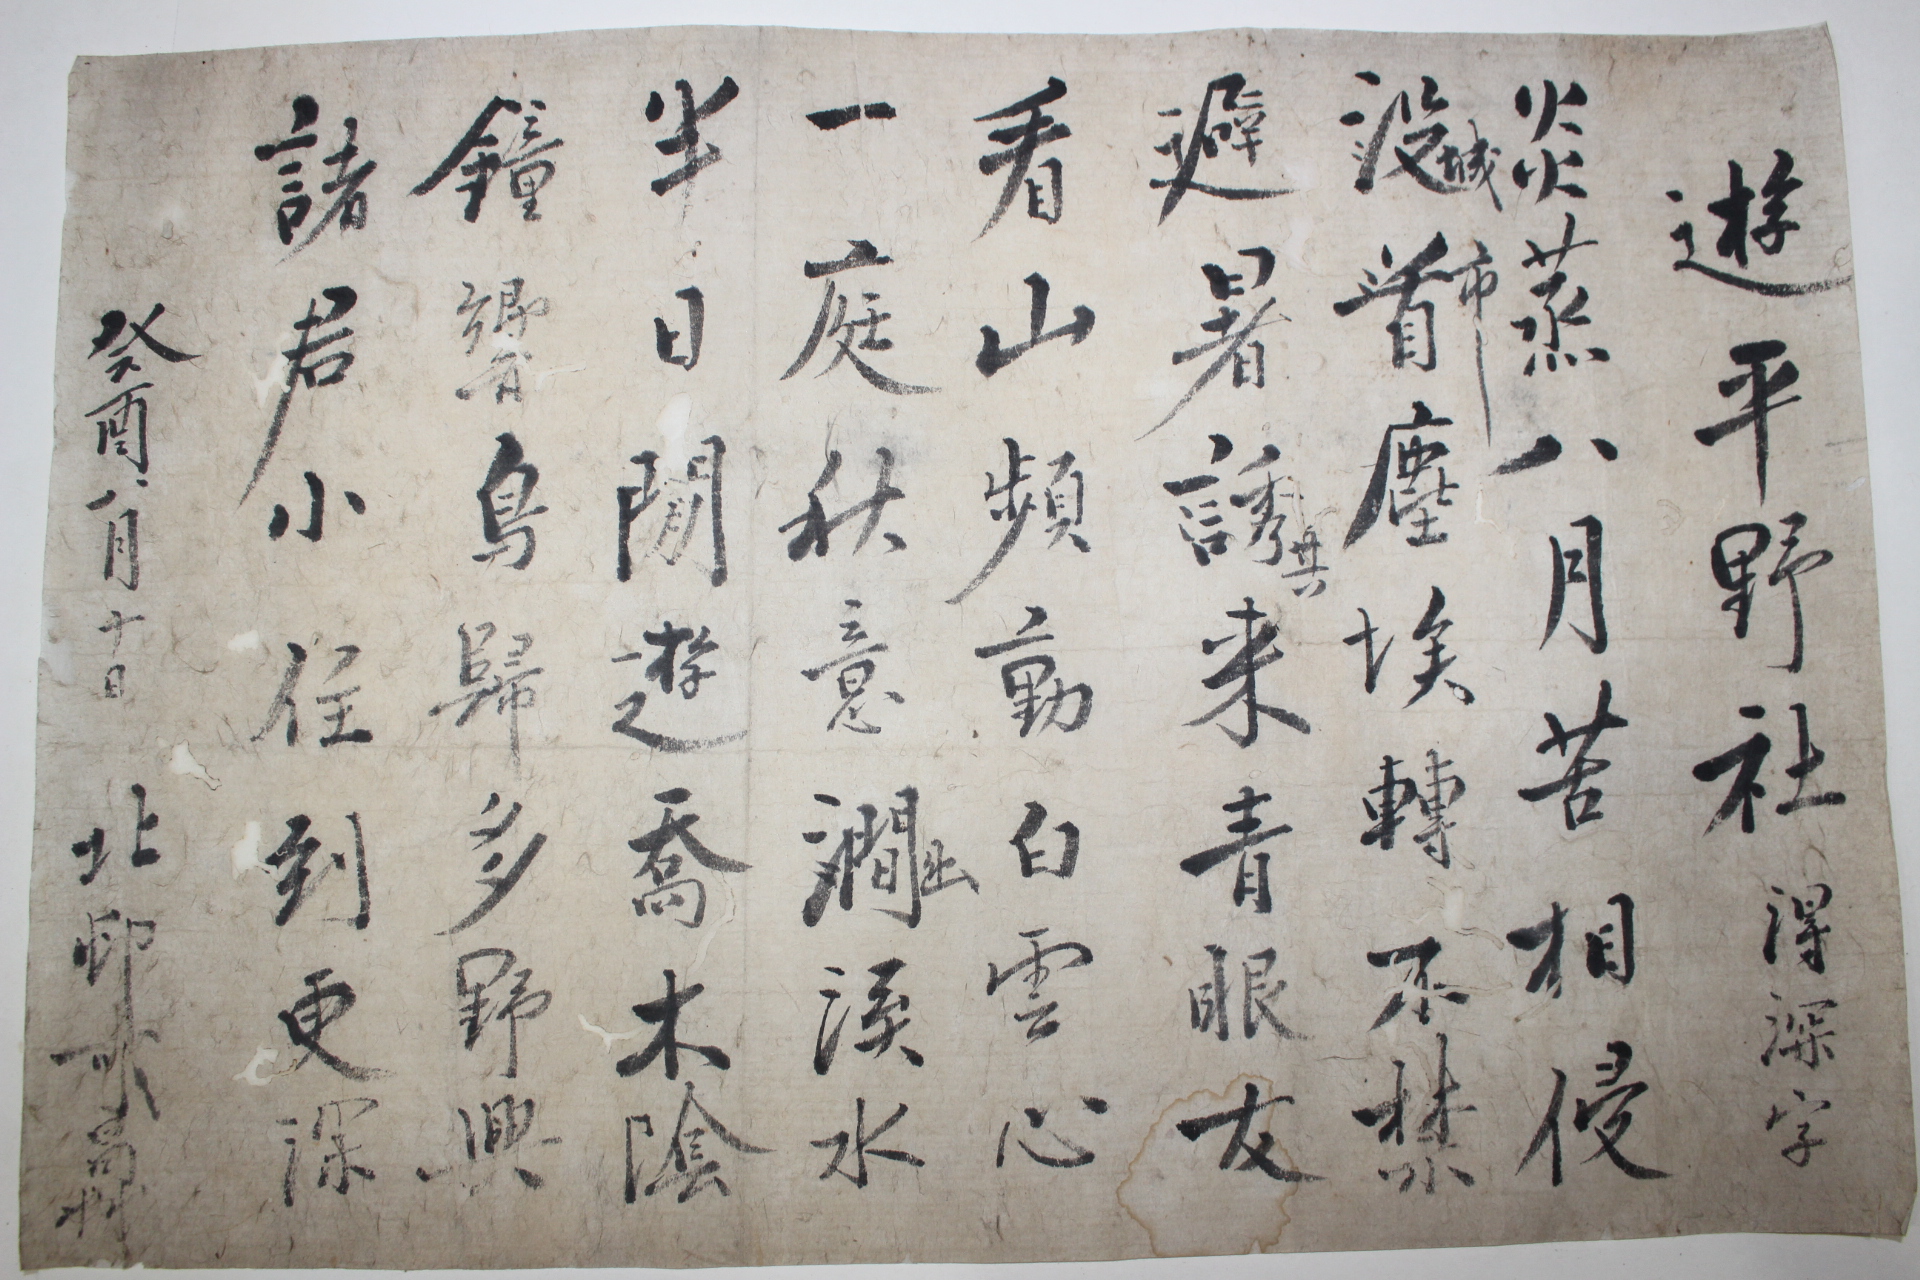 遊平野社 得深字
炎蒸八月苦相侵
没首塵埃轉不禁
城市
避暑誘来青眼友
共
看山頻勤白雲心
一庭秋意澗溪水
半日閒遊喬木陰
鐘響鳥歸多野興
諸君小住到更深
癸酉八月十日 北邨